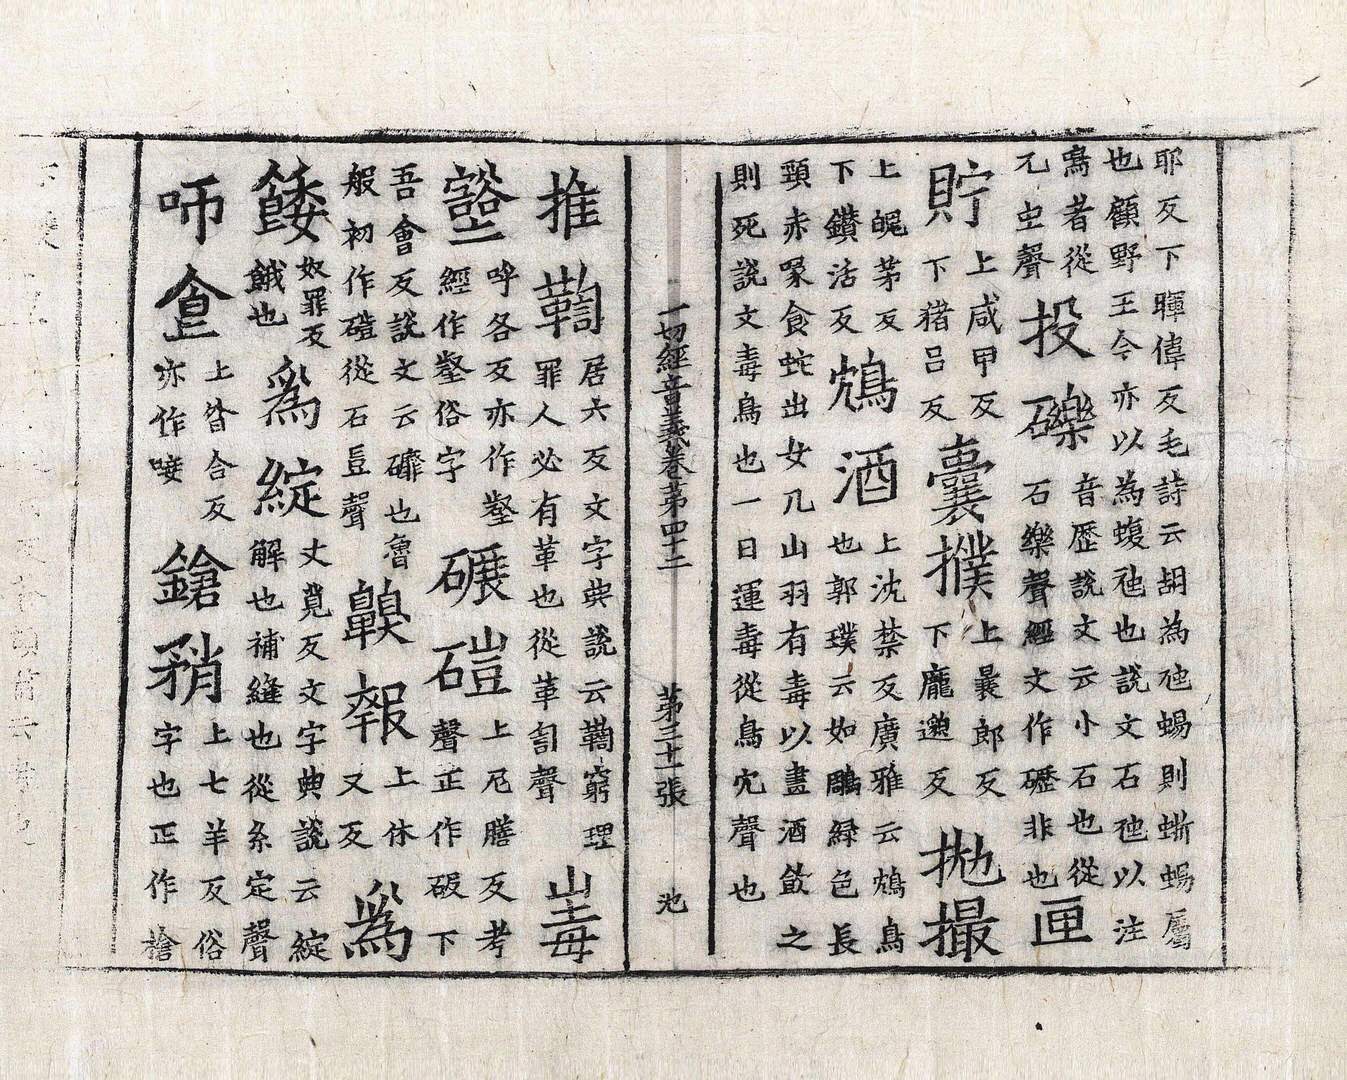 耶反下暉偉反毛詩云胡為虺蜴則蜥蜴屬
也顧野王今亦以為蝮虺也說文石虺以注
鳴者從
兀虫聲
投礫
音歷說文云小石也從
石樂聲經文作礰非也
匣
貯
上咸甲反
下猪呂反
囊撲
上曩郎反
下龐邈反
拋撮
上㿺茅反
下鑽活反
鴆酒
上沈禁反廣雅云鴆鳥
也郭璞云如鵰綠色長
頸赤喙食蛇出女几山羽有毒以畫酒飲之
則死說文毒鳥也一日運毒從鳥冘聲也
一切經音義卷第四十二
第三十一張
池
推鞫
居六反文字典說云鞫窮理
罪人必有革也從革匋聲
毒
壑
呼各反亦作壑
經作壑俗字
碾磑
上尼膳反考
聲正作㞋下
吾會反說文云䃺也魯
般初作磑從石豈聲
鼽報
上休
又反
為
餧
奴罪反
餓也
為綻
丈莧反文字典說云綻
解也補縫也從糸定聲
咂㿽
上咨合反
亦作唼
鎗矟
上七羊反俗
字也正作槍